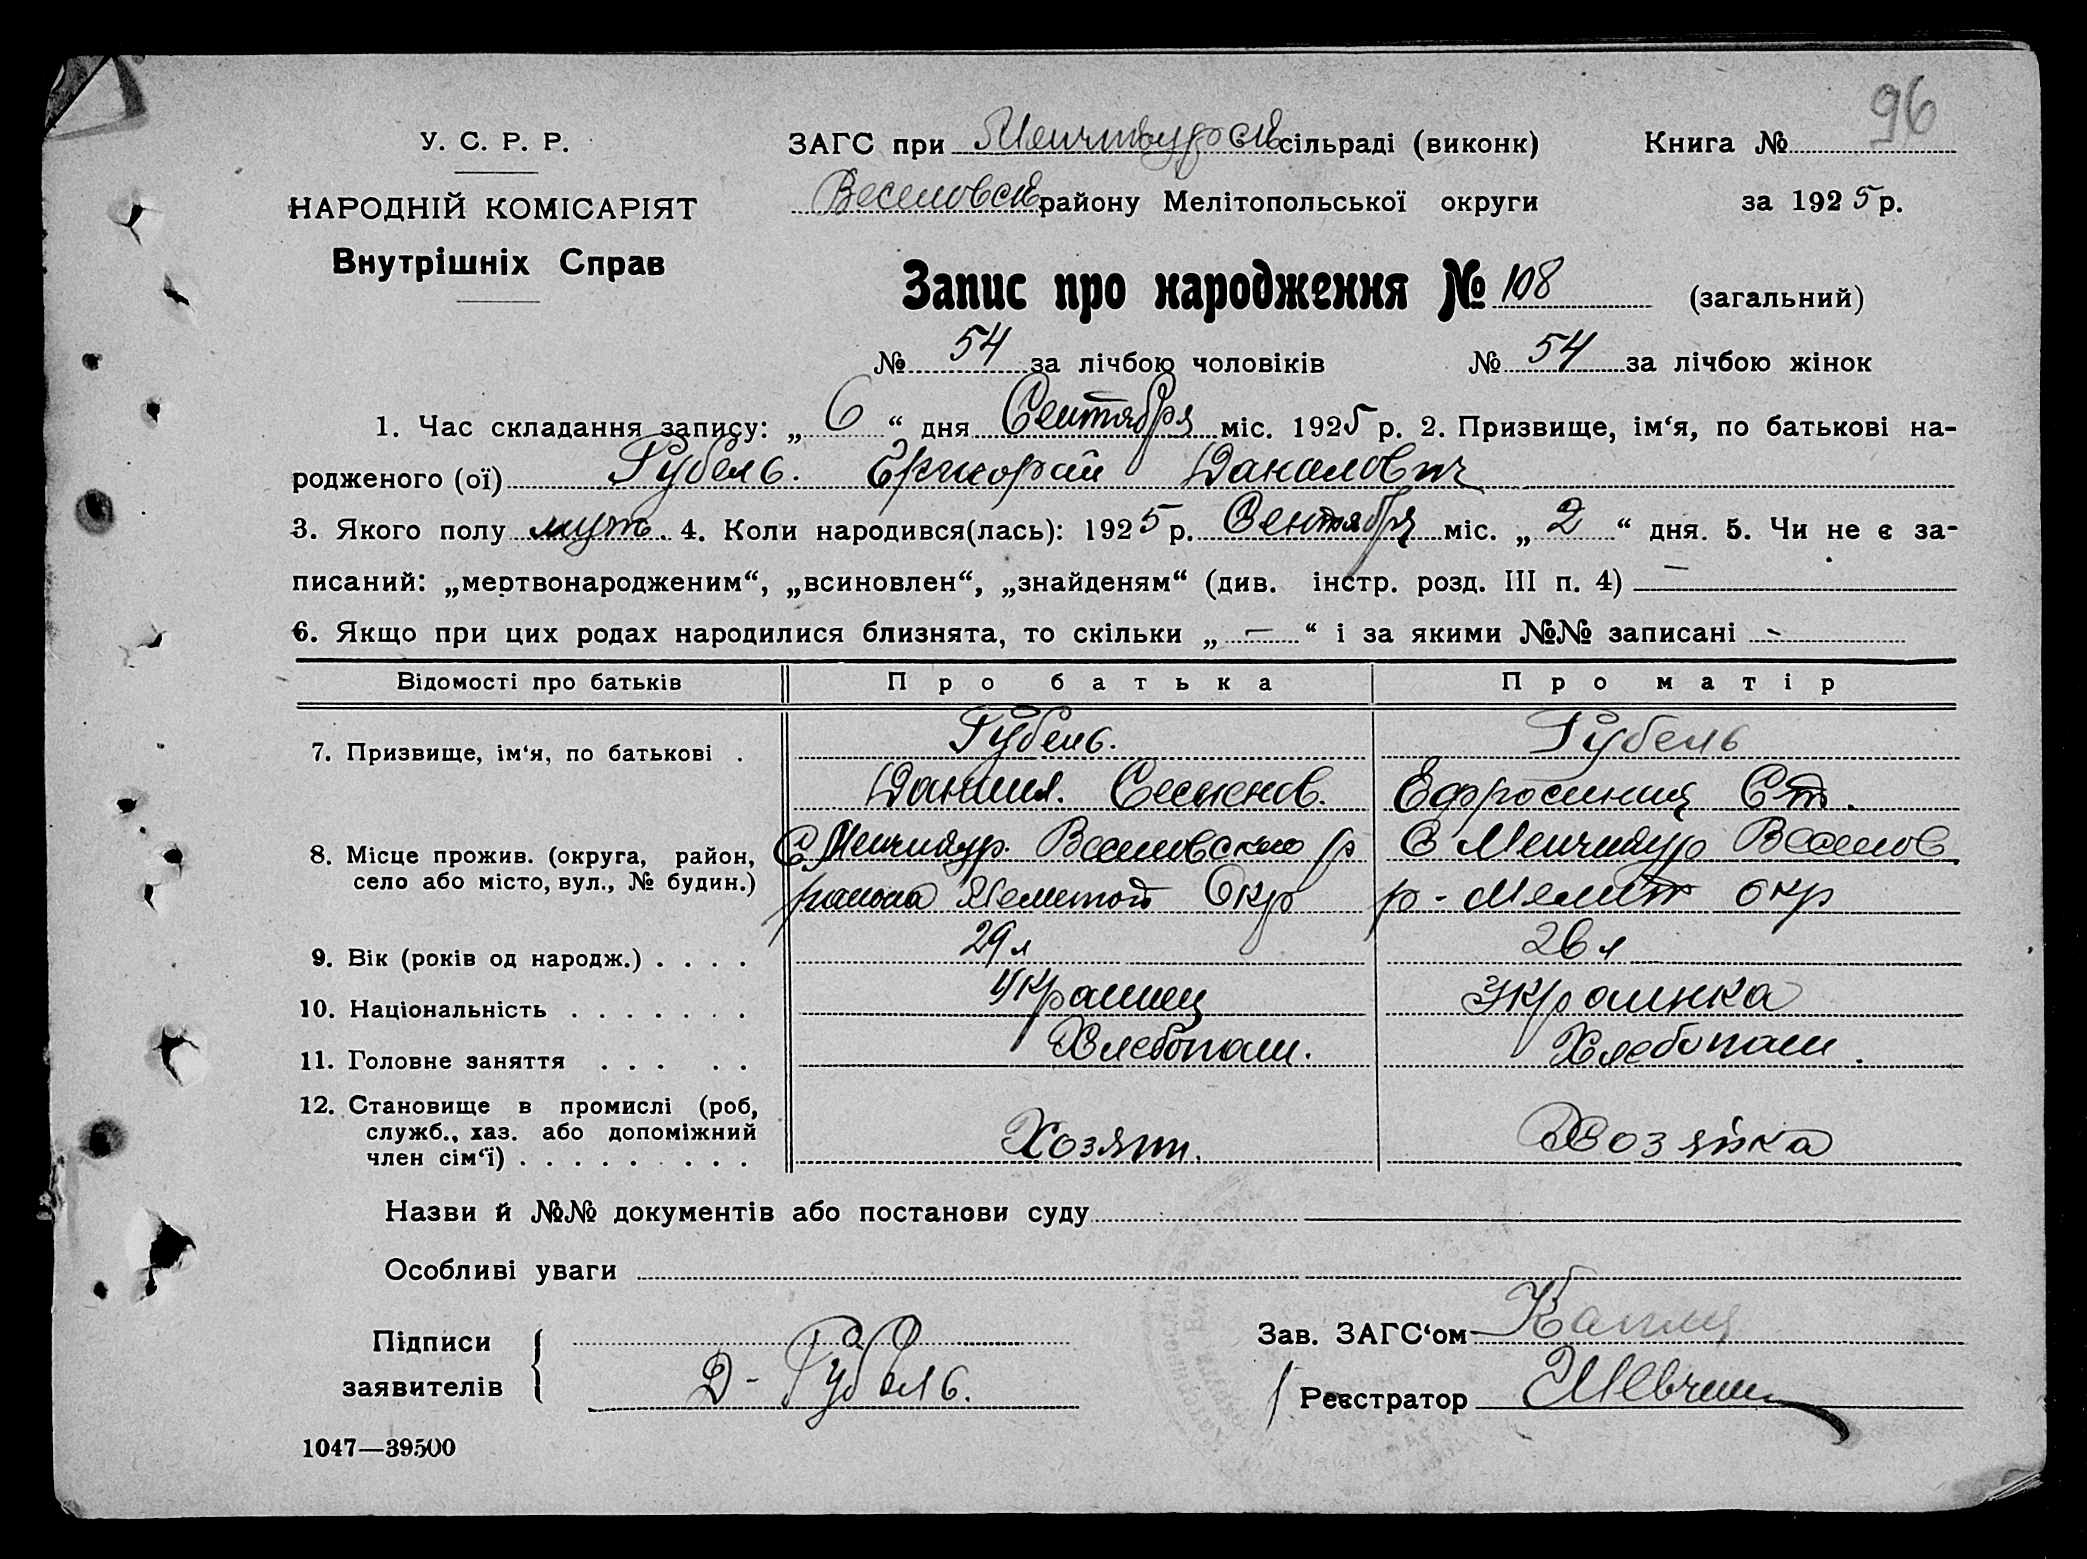 96
У. С. Р. Р.
НАРОДНІЙ КОМІСАРІЯТ
Внутрішніх Справ
ЗАГС при Менчикурськ сільраді (виконк)
Веселовськ району Мелітопольської округи
Книга №
за 1925 р.
Запис про народження № 108 (загальний)
№ 54 за лічбою чоловіків № 54 за лічбою жінок
1. Час складання запису: „ 6 “ дня Сентября міс. 1925 р. 2. Призвище, ім‘я, по батькові на-
родженого (ої) Губель. Григорий Данилович
3. Якого полу муж. 4. Коли народився(лась): 1925 р. Сентября міс. „ 2 “ дня. 5. Чи не є за-
писаний: „мертвонародженим“, „всиновлен“, „знайденям“ (див. інстр. розд. III п. 4) —
6. Якщо при цих родах народилися близнята, то скільки „ — “ і за якими №№ записані -
Відомості про батьків Про батька Про матір
7. Призвище, ім‘я, по батькові . Губель. Губель
Даниил. Семенов. Ефросиния Ст.
8. Місце прожив. (округа, район, С Менчикур. Веселовского р С Менчикур Веселов
село або місто, вул., № будин.) района Мелитоп Окр р - Мелит окр
9. Вік (років од народж.) . . . . 29 л 26 л
10. Національність . . . . . . . Украинец Украинка
11. Головне заняття . . . . . Хлебопаш. Хлебопаш.
12. Становище в промислі (роб,
служб., хаз. або допоміжний
член сім‘ї) . . . . . . . . Хозяин. Хозяйка
Назви й №№ документів або постанови суду
Особливі уваги
Підписи
заявителів
Д - Губель.
Зав. ЗАГС‘ом
Реєстратор
1047—39500